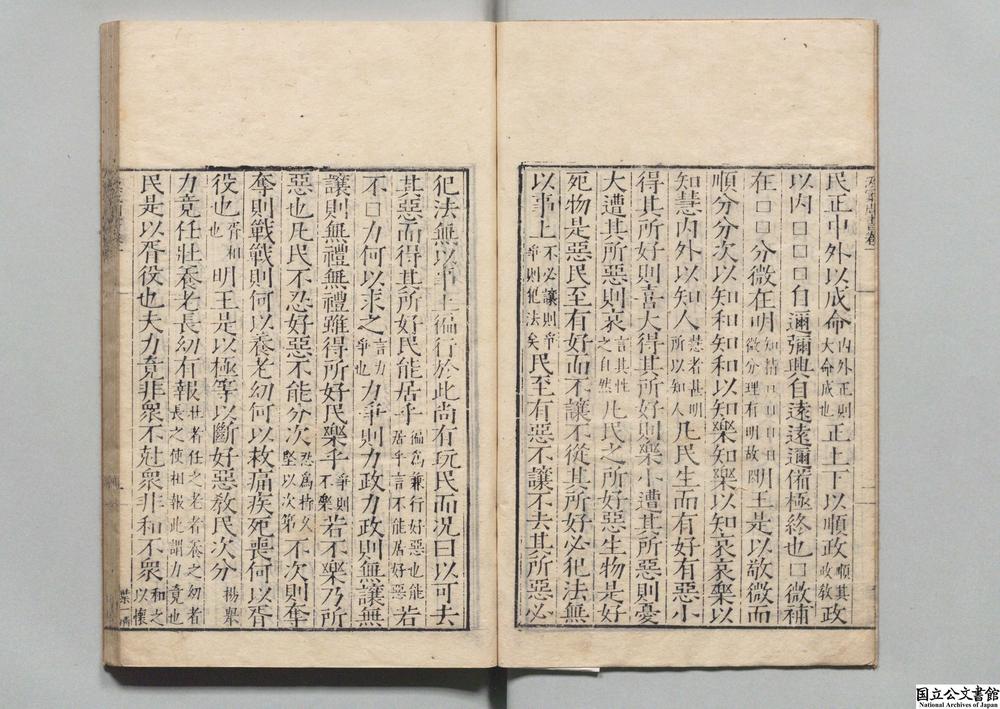 民正中外以成命内外正則大命成也正上下以順政順其政政敎
以内口口口自邇彌興自遠遠邇備極終也口微補
在口口口分微在明知情口口口曰微分理有明故明王是以敬微而
順分分次以知和知和以知樂知樂以知哀哀樂以
知慧内外以知人慧者甚明所以知人凡民生而有好有惡小
得其所好則喜大得其所好則樂小遭其所惡則憂
大遭其所惡則哀言其性之自然凡民之所好惡生物是好
死物是惡民至有好而不讓不從其所好必犯法無
以事上不必讓則爭爭則犯法矣民至有惡不讓不去其所惡必
犯法無以事上徧行於此尚有玩民而况曰以可去
其惡而得其所好民能居乎徧爲兼行好惡也能居乎言不能居好惡若
不口力何以求之言力爭也力爭則力政力政則無讓無
讓則無禮無禮雖得所好民樂乎爭則不樂若不樂乃所
惡也凡民不忍好惡不能分次忍爲持久堅以次第不次則奪
奪則戰戰則何以養老幼何以救痛疾死喪何以胥
役也胥相也明王是以極等以斷好惡敎民次分揚舉
力竟任壯養老長幼有報壯者任之老者養之幼者長之使相報此謂力竟也
民是以胥役也夫力竟非衆不尅衆非和不衆和之以懷
国立公文書館
National Archives of Japan